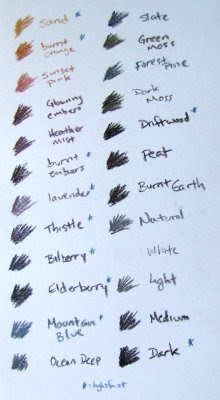 Sand *
burnt
orange *
Sunset
pink
Glowing
embers
Heather
mist
burnt *
embers
lavender *
Thistle *
Bilberry *
Elderberry *
Mountain *
Blue
Ocean Deep
slate
Green
Moss
Forest
Pine
Dark
Moss
Driftwood *
Peat
Burnt Earth
Natural
White
Light
Medium
Dark *
* = lightfast